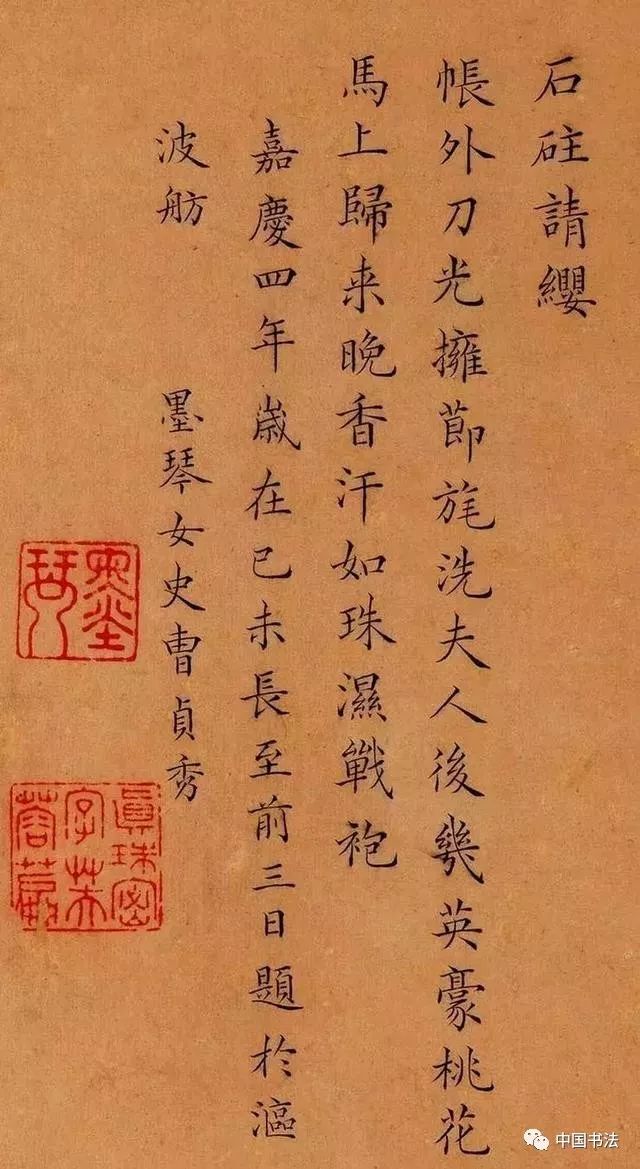 石砫請纓
帳外刀光擁節旄洗夫人後幾英豪桃花
馬上歸来晚香汗如珠濕戰袍
嘉慶四年嵗在已未長至前三日題於漚
波舫
墨琴女史曹貞秀
墨琴
真珠密字芙蓉蕝
中国书法